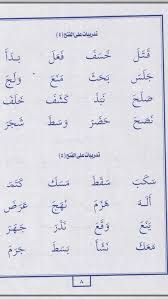 تدريبات على الفتح (٤)
قَتَلَ خَسَفَ فَعَلَ بَدَأَ
جَلَسَ بَحَثَ مَنَعَ وَلَجَ
صَلَحَ نَبَذَ كَشَفَ خَلَفَ
نَضَحَ حَضَرَ وَسَطَ شَجَرَ
تدريبات على الفتح (٥)
سَكَبَ سَقَطَ مَسَكَ كَتَمَ
هَزَمَ نَهَجَ عَرَضَ
يَنَعَ وَقَعَ نَذَرَ جَهَرَ
مَعَكَ نَشَأَ بَسَطَ جَرَمَ
٨